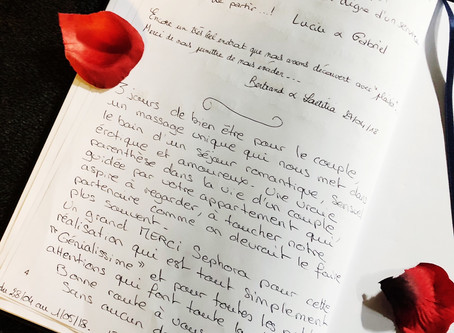 partir...!
Lucie & Gabriel
Encore un très bel endroit que nous avons découvert avec "plaisir"
Merci de nous permettre de nous évader ---
Bertrand & Laetitia 29/04/18
3 jours de bien être pour le couple,
un massage unique qui nous met dans
le bain d'un séjour romantique, sensuel
érotique et amoureux. Une vraie
parenthèse dans la vie d'un couple,
guidée par votre appartement qui
aspire à regarder, à toucher notre
partenaire comme on devrait le faire
plus souvent-
Un grand MERCI Sephora pour cette
réalisation qui est tout simplement
"Génialissime" et pour toutes les
attentions qui font toute la
Bonne route à vous
Sans aucun d
du 28/04 au 1/05/18.
4